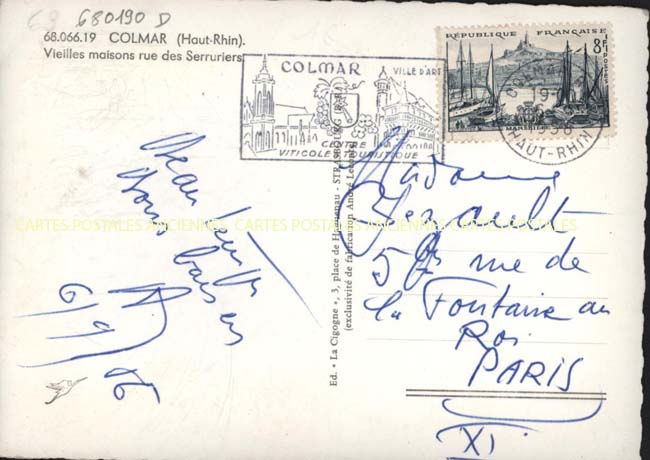 680190 D
68.066.19 COLMAR (Haut-Rhin).
Vieilles maisons rue des Serruriers
COLMAR
VILLE D'ART
CENTRE
VITICOLE & TOURISTIQUE
RÉPUBLIQUE FRANÇAISE
8F
POSTES
MARSEILLE
COLMAR
1956
HAUT-RHIN
Beau temps
Bons baisers
6/9/56
Ed. « La Cigogne », 3, place de Haguenau - STRASBOURG
(exclusivité de fabrication André
Madame
5 rue de
la Fontaine au
Roi
PARIS
XI
CARTES POSTALES ANCIENNES CARTES POSTALES ANCIENNES CARTES POSTALES